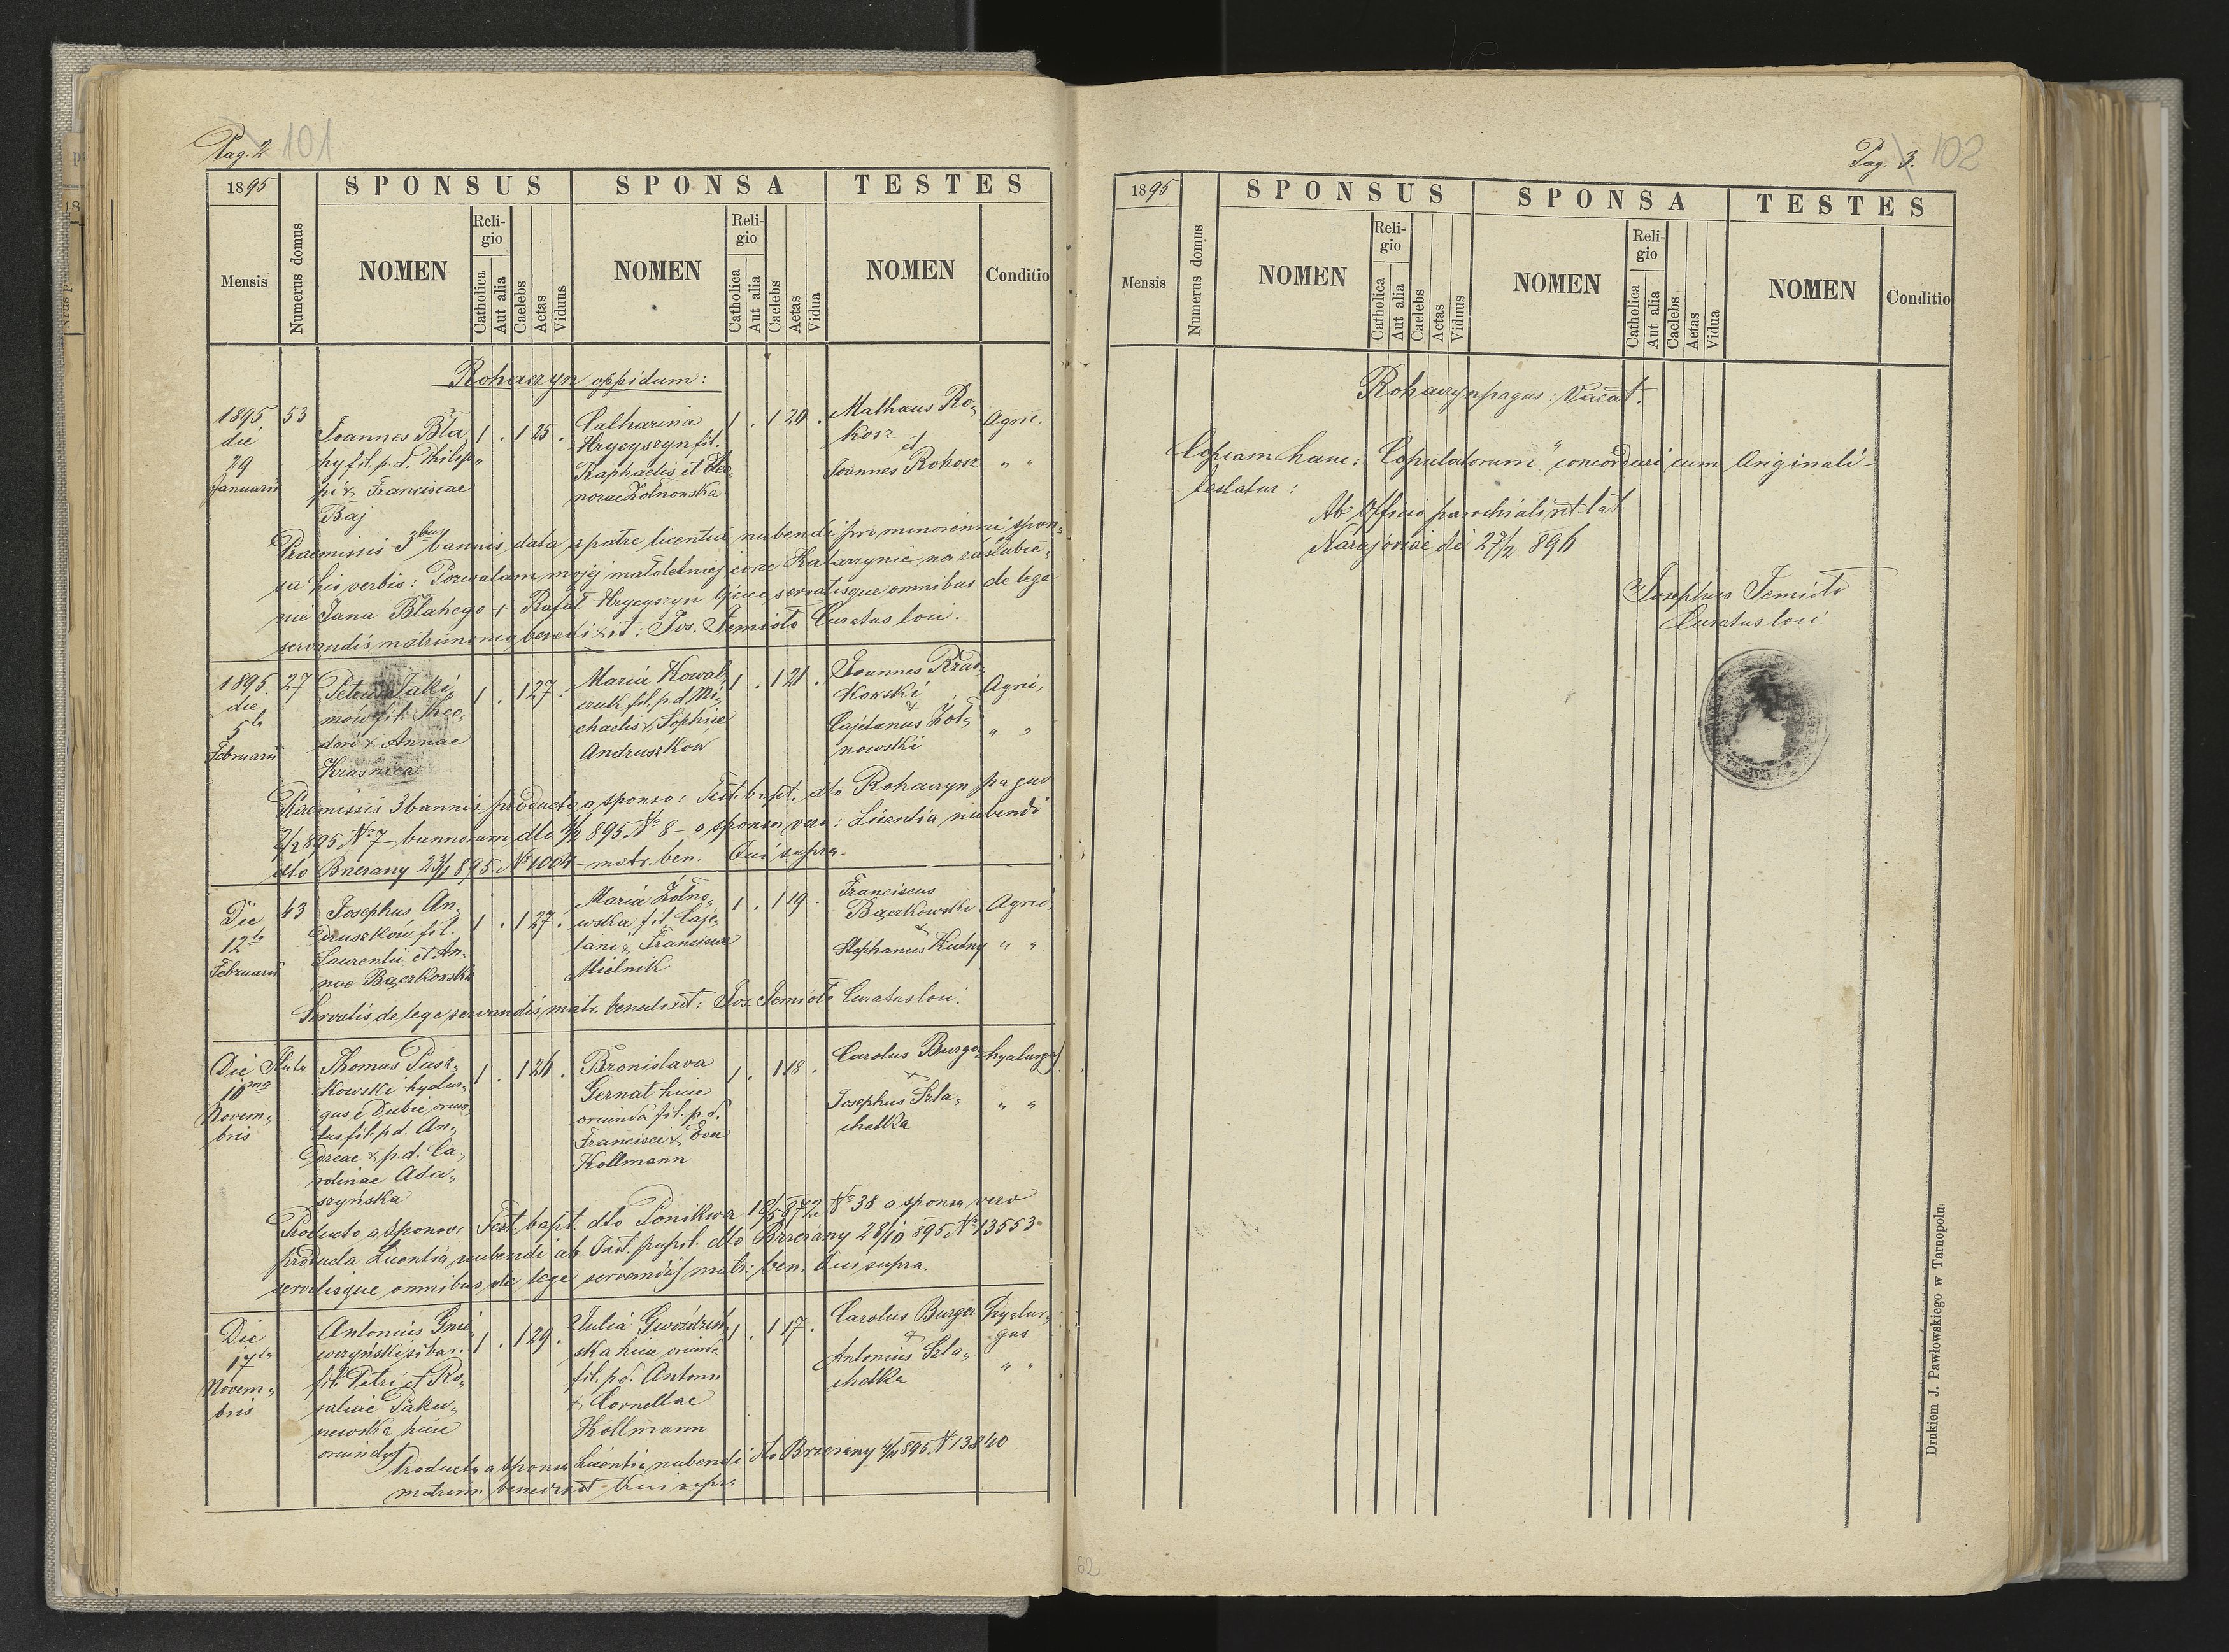 Pag. 2 101
1895 SPONSUS SPONSA TESTES
Mensis
Numerus domus
NOMEN
Reli-
gio
Catholica
Aut alia
Caelebs
Aetas
Viduus
NOMEN
Reli-
gio
Catholica
Aut alia
Caelebs
Aetas
Vidua
NOMEN
Conditio
Rohaczyn oppidum:
1895.
die
29
Januarii
53
Joannes Bla„
hy fil. p. d. Philip„
pi & Franciscae
Baj
1 . 1 25 .
Catharina
Hrycyszyn fil.
Raphaelis et Eleo„
norae Żołnowska
1 . 1 20 .
Mathaeus Ro„
kosz
et
Joannes Rokosz
Agric.
„ „
Praemissis 3bus bannis, data a patre licentia nubendi pro minorenni spon„
sa his verbis: Pozwalam mojej małoletniej córce Katarzynie na zaślubie„
nie Jana Blahego + Rafał Hrycyszyn servatisque omnibus de lege
servandis matrimonio benedixit: Jos. Temioto Curatus loci.
1895.
die
5ta
Februarii
27
Petrus Jaki„
mów fil. Theo„
dori & Annae
Krasnica
1 . 1 27 .
Maria Kowal„
czuk fil. p. d. Mi„
chaelis & Sophiae
Andruszków
1 . 1 21 .
Joannes Rzad„
kowski
&
Cajetanus Żoł„
nowski
Agri.
„ „
Praemissis 3 bannis producto a sponso: Test. bapt. dto Rohaczyn pagus
2/2 895 No 7 – bannorum dto 4/2 895 No 8 – a sponsa vero: Licentia nubendi
dto Brzezany 23/1 895 No 1004 – matr. ben. Qui supra –
Die
12ta
Februarii
43
Josephus An„
druszków fil.
Laurentii et An„
nae Bączkowska
1 . 1 27 .
Maria Żołno„
wska fil. Caje„
tani & Franciscae
Mielnik
1 . 1 19 .
Franciscus
Bączkowski
&
Stephanus Kutny
Agric.
„ „
Servatis de lege servandis matr. benedixit: Jos. Temioto Curatus loci.
Die
10ma
Novem„
bris
Huta
Thomas Pasz„
kowski hyalur„
gus e Dubie oriun„
dus fil. p. d. An„
dreae & p. d. Ca„
rolinae Ada„
szyńska
1 . 1 26 .
Bronislava
Gernat huic
oriunda fil. p. d.
Francisci & Eva
Kollmann
1 . 1 18 .
Carolus Burger
&
Josephus Szla„
chetka
hyalurgus
„ „
Producto a sponso: Test. bapt. dto Ponikwa 18/5 872 No 38 a sponsa vero
producta Licentia nubendi ab Inst. pupil. dto Brzezany 28/10 895 No 13553
servatisque omnibus de lege servandis matr. ben. Qui supra.
Die
17ta
Novem„
bris
Antonius Gnie
woszyński
fil. Petri et Ro„
saliae Paku„
newska huic
oriundus
1 . 1 29 .
Julia Gwoździń
ska huic oriunda
fil. p. d. Antonii
& Cornellae
Kollmann
1 . 1 17 .
Carolus Burger
&
Antonius Szla„
chetka
Hyalur„
gus
„ „
Producta a sponsa Licentia nubendi dto Brzezany 4/11 895 No 13840
matrim. benedixit – Qui supra
Pag. 3. 102
1895 SPONSUS SPONSA TESTES
Mensis
Numerus domus
NOMEN
Reli-
gio
Catholica
Aut alia
Caelebs
Aetas
Viduus
NOMEN
Reli-
gio
Catholica
Aut alia
Caelebs
Aetas
Vidua
NOMEN
Conditio
Rohaczyn pagus: Vacat.
Copiam hanc: „Copulatorum“ concordari cum Originali –
testatur:
Ab Officio parochiali rit. lat
Narajoviae de 27/2 896
Josephus Temioto
Curatus loci
Drukiem J. Pawłowskiego w Tarnopolu.
62